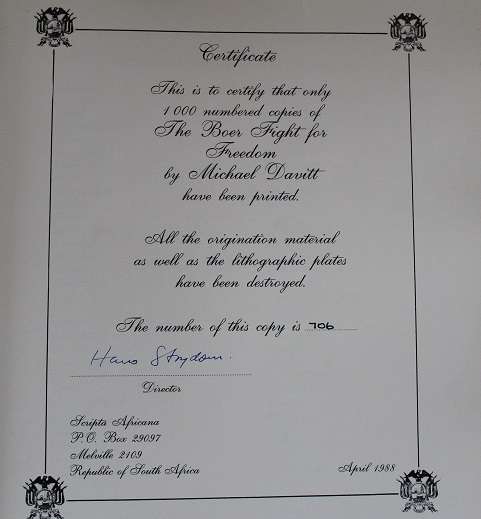 Certificate
This is to certify that only
1 000 numbered copies of
The Boer Fight for
Freedom
by Michael Davitt
have been printed.
All the origination material
as well as the lithographic plates
have been destroyed.
The number of this copy is 706
Hans Strydom.
Director
Scripta Africana
P.O. Box 29097
Melville 2109
Republic of South Africa
April 1988